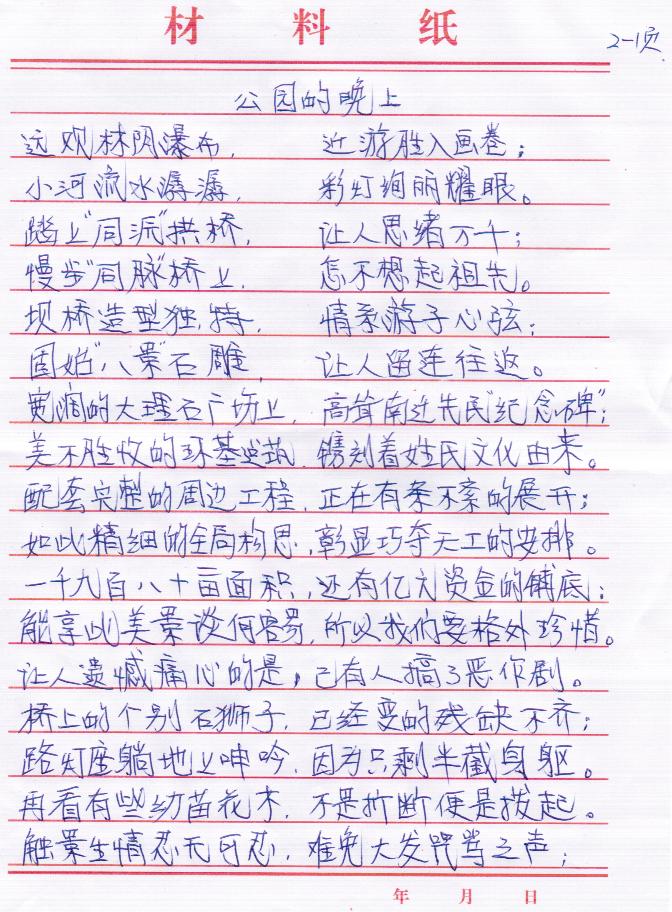 材料纸
2-1页
公园的晚上
远观林阴瀑布， 近游胜入画卷；
小河流水潺潺， 彩灯绚丽耀眼。
踏上“同派”拱桥， 让人思绪万千；
慢步“同脉”桥上， 怎不想起祖先。
坝桥造型独特， 情系游子心弦；
固始“八景”石雕， 让人留连往返。
宽阔的大理石广场上，高耸南迁先民“纪念碑”；
美不胜收的环基建筑，镌刻着姓氏文化由来。
配套完整的周边工程，正在有条不紊的展开；
如此精细的全局构思，彰显巧夺天工的安排。
一千九百八十亩面积，还有亿元资金的铺底；
能享此美景谈何容易，所以我们要格外珍惜。
让人遗憾痛心的是，已有人搞了恶作剧。
桥上的个别石狮子，已经变的残缺不齐；
路灯座躺地上呻吟，因为只剩半截身躯。
再看有些幼苗花木，不是折断便是拔起。
触景生情忍无可忍，难免大发咒骂之声；
年 月 日